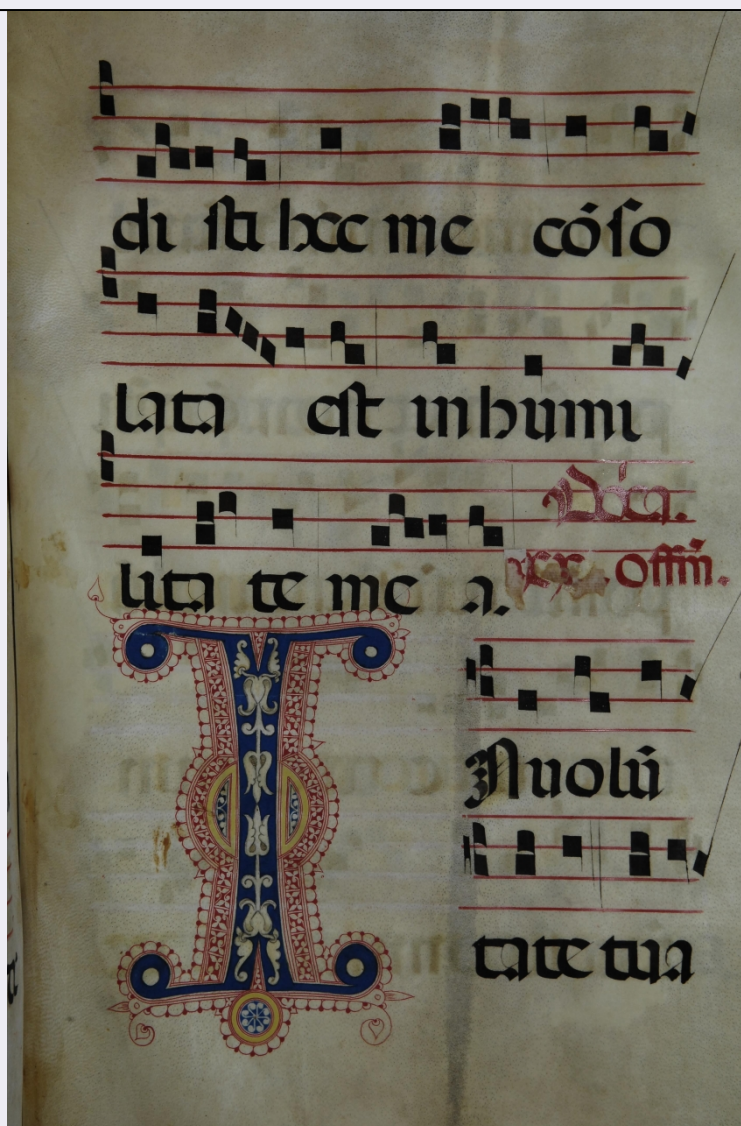 di sti hec me cōso
lata est in humi
lita te me a. Dōca.
xx. offm̄.
IN uolū
tate tua